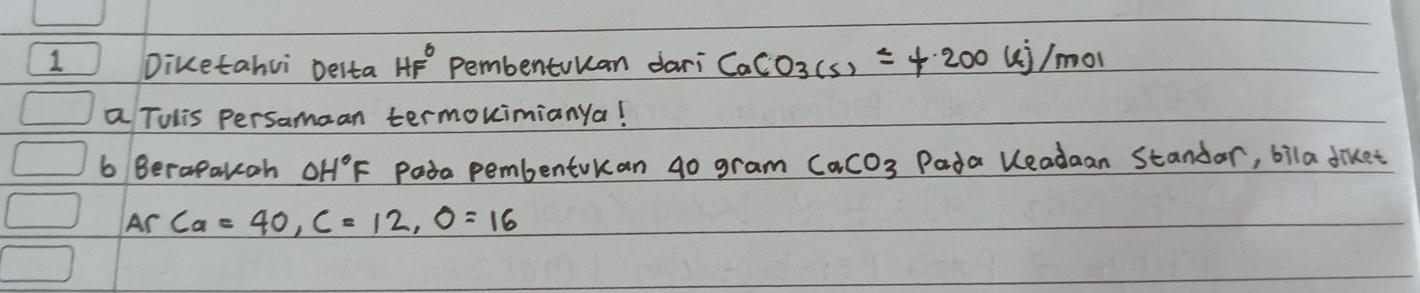 1 Diketahui Delta HF° Pembentukan dari CaCO3(s) = +.200 kj/mol
a Tulis Persamaan termokimianya!
b Berapakah ΔH°F Pada pembentukan 40 gram CaCO3 Pada Keadaan Standar, bila diket
Ar Ca = 40, C = 12, O = 16